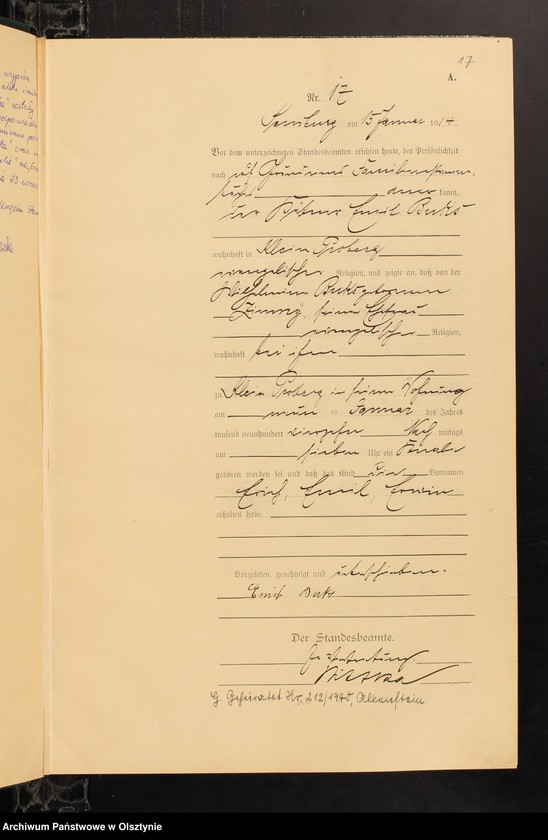 17
A.
Nr. 17
Sensburg am 15 Januar 1914.
Vor dem unterzeichneten Standesbeamten erschien heute, der Persönlichkeit
nach auf Grund des Familienstamm-
buchs aner kannt,
der Emil Buks
wohnhaft in Klein Proberg
evangelischer Religion, und zeigte an, daß von der
Wilhelmine Buks geborenen
seiner Ehefrau
evangelischer Religion,
wohnhaft bei ihm
zu Klein Proberg in seiner Wohnung
am neun ten Januar des Jahres
tausend neunhundert vierzehn Nach mittags
um sieben Uhr ein Knabe
geboren worden sei und daß das Kind die Vornamen
Erich, Emil, Erwin
erhalten habe.
Vorgelesen, genehmigt und unterschrieben.
Emil Buks
Der Standesbeamte.
In Vertretung.
G. Geheiratet Nr. 212/1940, Allenstein
wypisu
Archiwum Państwowe w Olsztynie